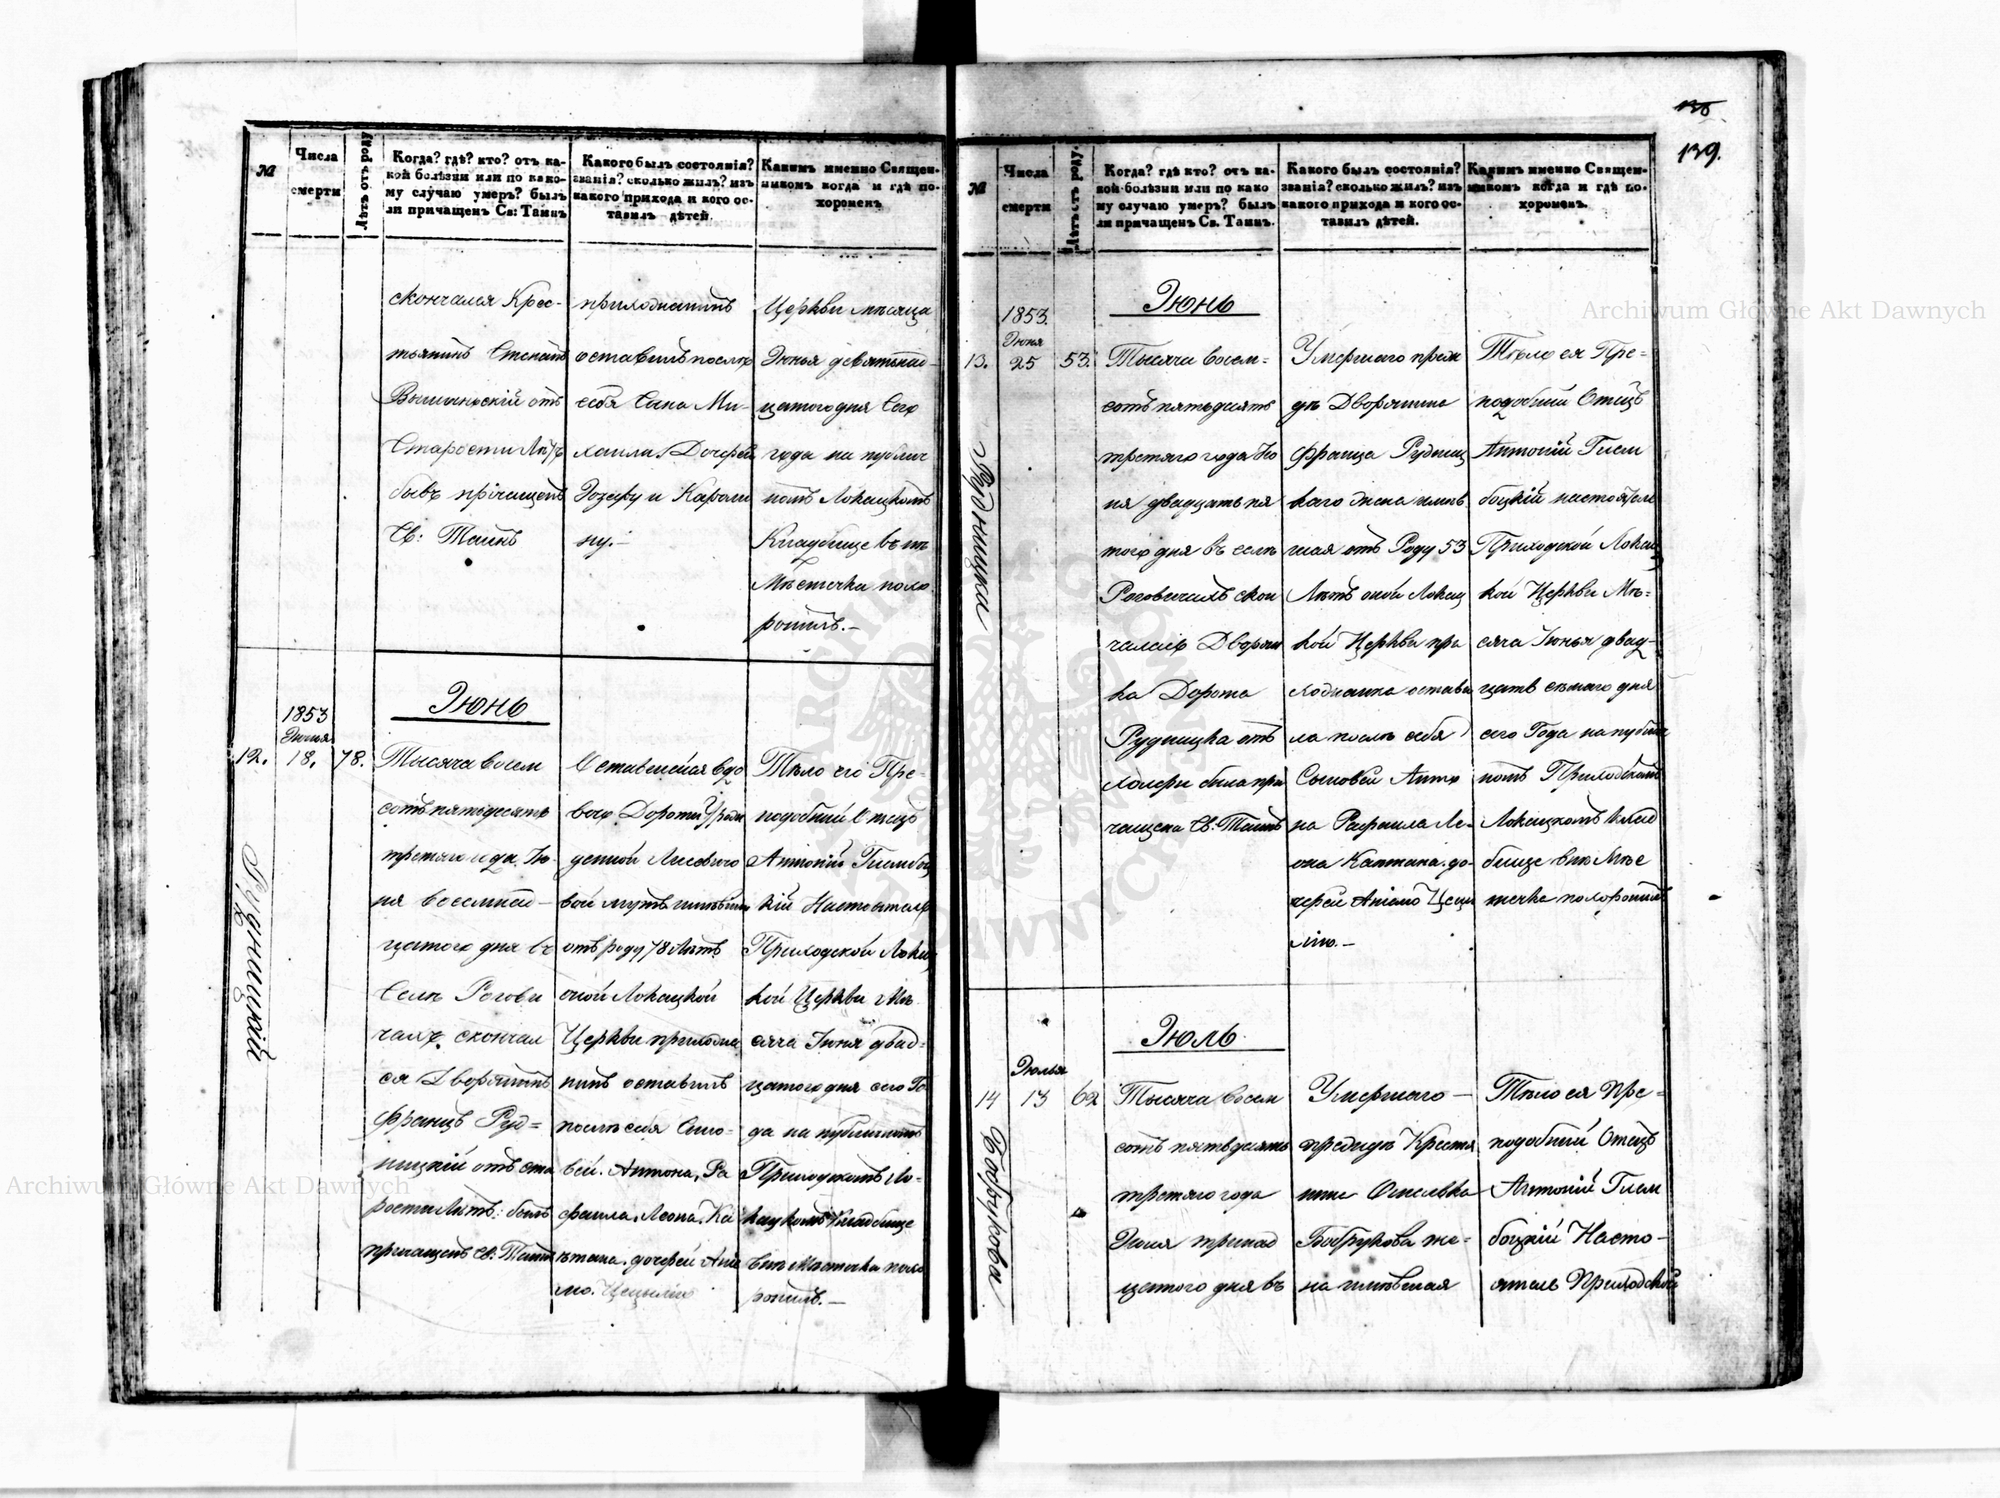 136
139.
Archiwum Główne Akt Dawnych
Archiwum Główne Akt Dawnych
№
Числа
смерти
Лѣтъ отъ роду
Когда? гдѣ? кто? отъ ка-
кой болѣзни или по како-
му случаю умеръ? былъ
ли причащенъ Св: Таинъ
Какого былъ состоянія?
званія? сколько жилъ? изъ
какого прихода и кого ос-
тавилъ дѣтей.
Какимъ именно Священ-
никомъ когда и гдѣ по-
хороненъ
скончался Крес-
тьянинъ Степанъ
отъ
Старости Лѣтъ
бывъ прічащенъ
Св: Таинъ
прихожанинъ
оставилъ послѣ
себя Сына Ми-
хаила, Дочерей
Іозефу и Кароли
ну.-
Церкви мѣсяца
Іюнья девятнад-
цатого дня Сего
года на публич
номъ Локацкомъ
Кладбище въ нѣ
Мѣстечка похо
ронилъ.-
12.
1853
Іюня
18.
78.
Рудницкій
Іюнь
Тысяча восем
сотъ пятьдесятъ
третяго года Ію-
ня восемнад-
цатого дня въ
Селѣ Рогови
чахъ скончал
ся Дворянинъ
Францъ Руд=
ницкій отъ ста
рости Лѣтъ: былъ
причащенъ Св: Таинъ
Оставшейся вдо
вою Дороты Урож
денной Лисевичо
вой мужъ имѣвшій
отъ роду 78 Лѣтъ
оной Локацкой
Церкви прихожа
нинъ оставилъ
послѣ себя Сыно-
вей. Антона, Ра
фаила, Леона, Ка
етана, дочерей Анѣ
лю. Цецылію
Тѣло его Пре-
подобный Отецъ
Антоній Гlembоц
кій Настоятель
Приходской Локац
кой Церкви Мѣ-
сяца Іюня двад-
цатого дня сего Го
да на публичномъ
Приходскомъ Ло-
кацкомъ Кладбище
внѣ Мѣстечка похо
ронилъ.-
№
Числа
смерти
Лѣтъ отъ роду.
Когда? гдѣ кто? отъ ка-
кой болѣзни или по како
му случаю умеръ? былъ
ли причащенъ Св. Таинъ.
Какого былъ состоянія?
званія? сколько жилъ? изъ
какого прихода и кого ос-
тавилъ дѣтей.
Какимъ именно Священ-
никомъ когда и гдѣ по-
хороненъ.
13.
1853.
Іюня
25
53.
Рудницка
Іюнь
Тысяча восем=
сотъ пятьдсятъ
третяго года Ію
ня двадцать пя
того дня въ селѣ
Роговичахъ скон
чалась Дворян
ка Дорота
Рудницка отъ
холеры была при
чащена Св: Таинъ
Умершаго преж
дѣ Дворянина
Франца Рудниц
каго жена имѣв
шая отъ Роду 53
Лѣтъ оной Локац
кой Церкви при
хожанка остави
ла послѣ себя
Сыновей Анто
на Рафаила Ле-
она Каитана. до-
черей Анѣлю Цецы
лію.-
Тѣло ея Пре=
подобный Отецъ
Антоній Глем
боцкій настоятель
Приходской Локац
кой Церкви Мѣ=
сяца Іюнья двад-
цать седмаго дня
сего Года на публич
номъ Приходскомъ
Локацкомъ Клад
бище внѣ Мѣс
течка похоронилъ
14
Іюлья
13
62
Бобрукова
Іюль
Тысяча восем
сотъ пятьдсятъ
третяго года
Іюля тринад
цатого дня въ
Умершаго -
преждѣ Крестя
нина
Бобрукова же-
на имѣвшая
Тѣло ея Пре=
подобный Отецъ
Антоній Глем
боцкій Насто-
ятель Приходской